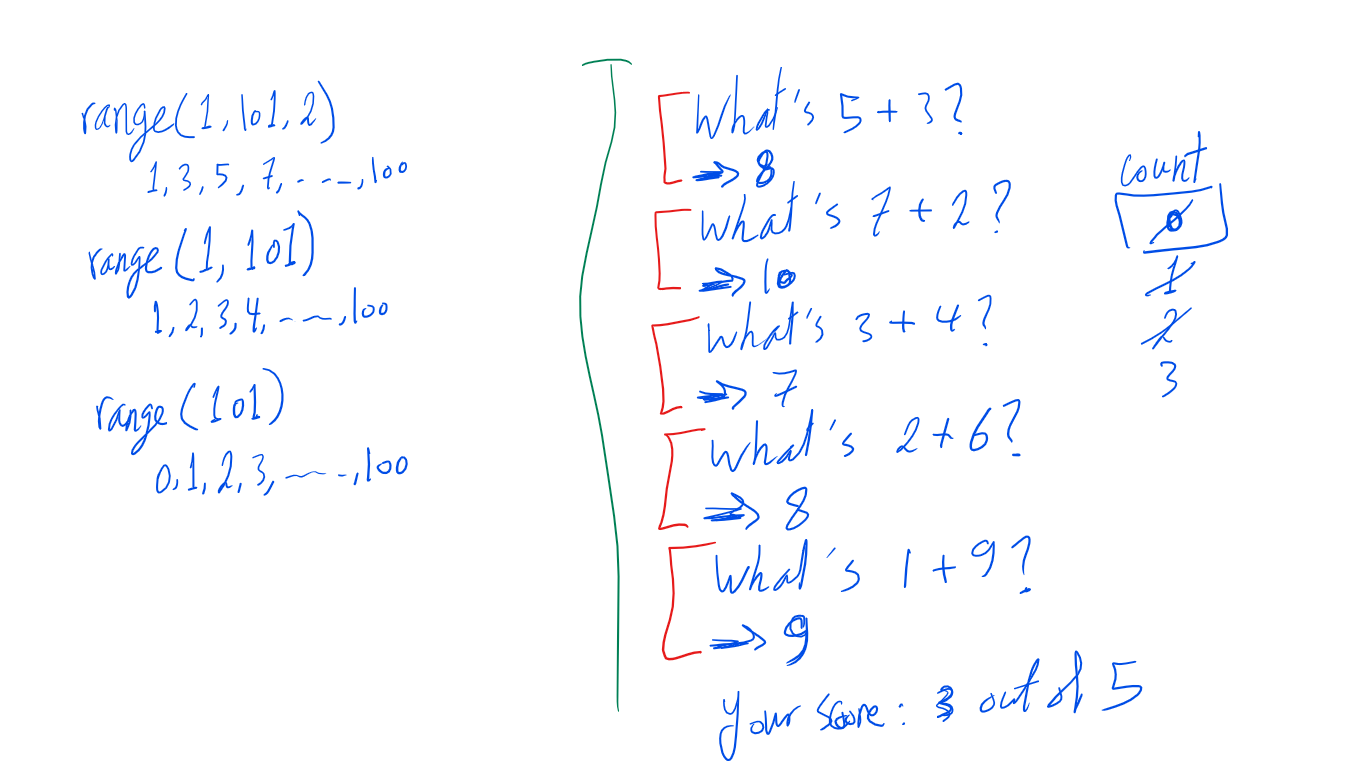 range(1, 101, 2)
1, 3, 5, 7, - - -, 100
range (1, 101)
1, 2, 3, 4, - - -, 100
range (101)
0, 1, 2, 3, - - -, 100
What's 5 + 3?
→ 8
What's 7 + 2?
→ 10
What's 3 + 4?
→ 7
What's 2 + 6?
→ 8
What's 1 + 9?
→ 9
Your score: 3 out of 5
count
0
1
2
3